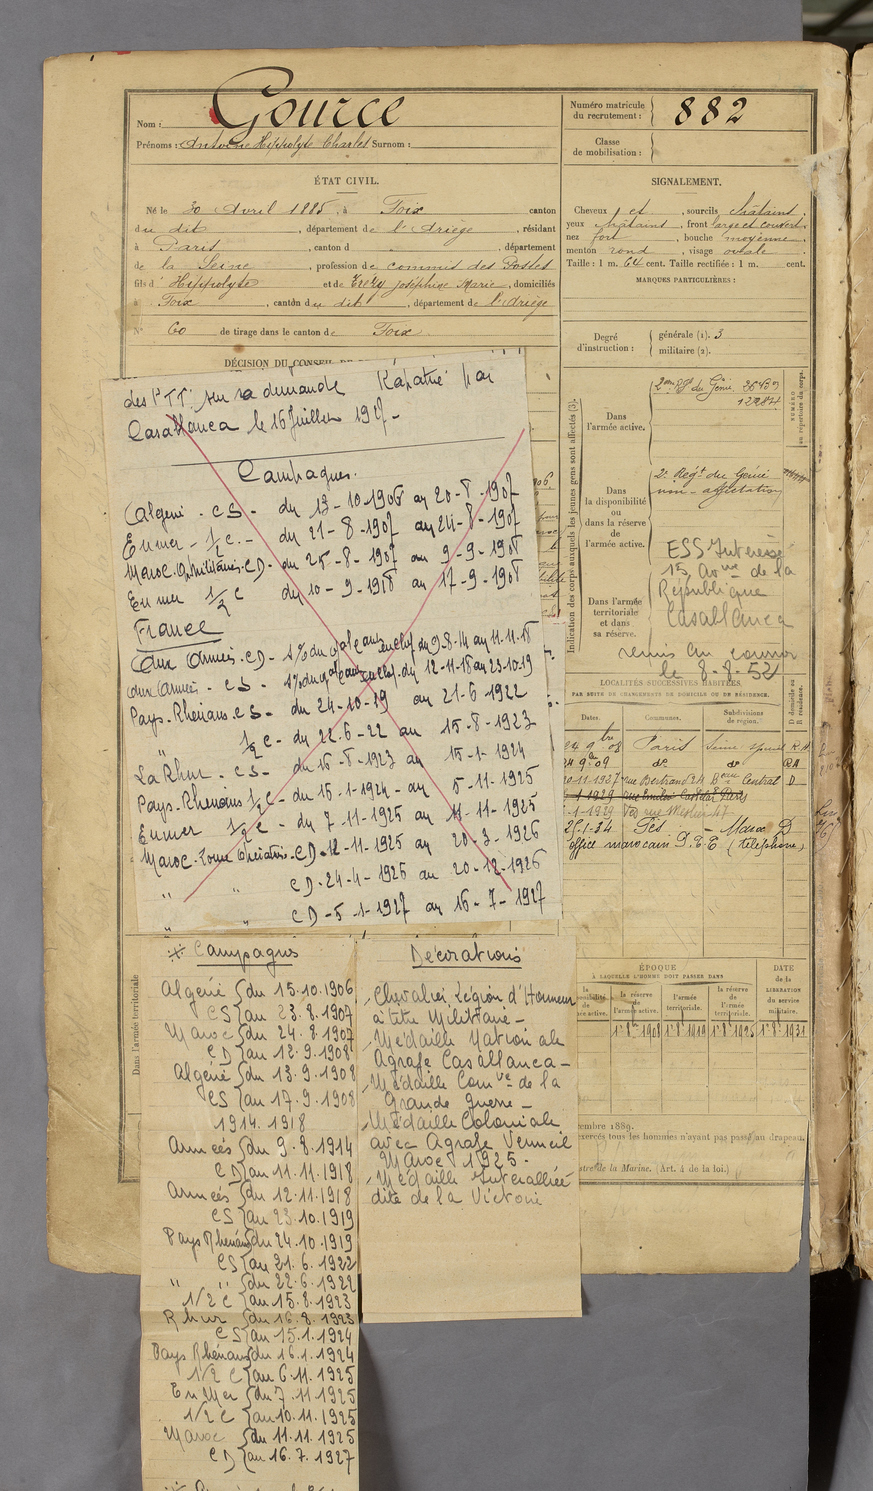 Nom : Gource
Prénoms : Antoine Hippolyte Charles Surnom :
Numéro matricule du recrutement : 882
Classe de mobilisation :
ÉTAT CIVIL.
Né le 30 Avril 1885, à Foix canton
du dit, département de l'Ariège, résidant
à Paris, canton d , département
de la Seine, profession de commis des Postes
fils d' Hippolyte et de Josephine Marie, domiciliés
à Foix, canton du dit, département de l'Ariège
N° 60 de tirage dans le canton de Foix
DÉCISION DU CONSEIL DE
SIGNALEMENT.
Cheveux et, sourcils châtains
yeux châtains, front large et couvert
nez fort, bouche moyenne
menton rond, visage ovale
Taille : 1 m. 64 cent. Taille rectifiée : 1 m. cent.
MARQUES PARTICULIÈRES :
Degré d'instruction : générale (1). 3
militaire (2).
Indication des corps auxquels les jeunes gens sont affectés (3).
Dans l'armée active.
NUMÉRO au répertoire du corps.
Dans la disponibilité ou dans la réserve de l'armée active.
2e Regt du Génie
non-affectation
Dans l'armée territoriale et dans sa réserve.
15 de la
République
Casablanca
remis au
le 8-8-52
LOCALITÉS SUCCESSIVES HABITÉES
PAR SUITE DE CHANGEMENTS DE DOMICILE OU DE RÉSIDENCE.
Dates. Communes. Subdivisions de région. D domicile ou R résidence.
24 9bre 08 Paris Seine R
24 9bre 09 do do RA
20-11-1927 rue Bertrand 24 Central D
-1-1929 Paris
-1-1929 rue 47
25-1-34 Fès - Maroc D
office marocain P.T.T (téléphone)
des PTT. sur sa demande Rapatrié par
Casablanca le 16 Juillet 1927-
Campagnes.
Algérie - CS - du 13-10-1906 au 20-8-1907
En mer - 1/2 C. - du 21-8-1907 au 24-8-1907
Maroc. - CD - du 25-8-1907 au 9-9-1908
En mer 1/2 C du 10-9-1908 au 17-9-1908
France
Aux Armées - CD - du 9-8-14 au 11-11-18
aux Armées - CS - du 12-11-18 au 23-10-19
Pays-Rhénans. CS - du 24-10-19 au 21-6-1922
" 1/2 C - du 22-6-22 au 15-8-1923
La Rhur - CS - du 16-8-1923 au 15-1-1924
Pays-Rhénans 1/2 C - du 16-1-1924 - au 6-11-1925
En mer 1/2 C - du 7-11-1925 au 11-11-1925
Maroc-Zone - CD - 12-11-1925 au 20-3-1926
" " CD - 24-4-1925 au 20-12-1926
" " CD - 5-1-1927 au 16-7-1927
Dans l'armée territoriale
Campagnes
Algérie CS du 15.10.1906
au 23.8.1907
Maroc CD du 24.8.1907
au 12.9.1908
Algérie CS du 13.9.1908
au 17.9.1908
1914.1918
Armées CD du 9.8.1914
au 11.11.1918
Armées CS du 12.11.1918
au 23.10.1919
Pays Rhénans CS du 24.10.1919
au 21.6.1922
" " 1/2 C du 22.6.1922
au 15.8.1923
Rhur CS du 16.8.1923
au 15.1.1924
Pays Rhénans 1/2 C du 16.1.1924
au 6.11.1925
En Mer 1/2 C du 7.11.1925
au 10.11.1925
Maroc CD du 11.11.1925
au 16.7.1927
Décorations
Chevalier Légion d'Honneur
à titre Militaire -
Médaille Nationale
Agrafe Casablanca -
Médaille Comve de la
Grande guerre -
Médaille Coloniale
avec Agrafe Vermeil
Maroc 1925 -
Médaille Interalliée
dite de la Victoire
ÉPOQUE
À LAQUELLE L'HOMME DOIT PASSER DANS
la réserve de l'armée active. l'armée territoriale. la réserve de l'armée territoriale.
DATE de la LIBÉRATION du service militaire.
1er 8bre 1908 1er 8bre 1919 1er 8bre 1925 1er 8bre 1931
tembre 1889.
exercés tous les hommes n'ayant pas passé au drapeau.
stre de la Marine. (Art. 4 de la loi.)